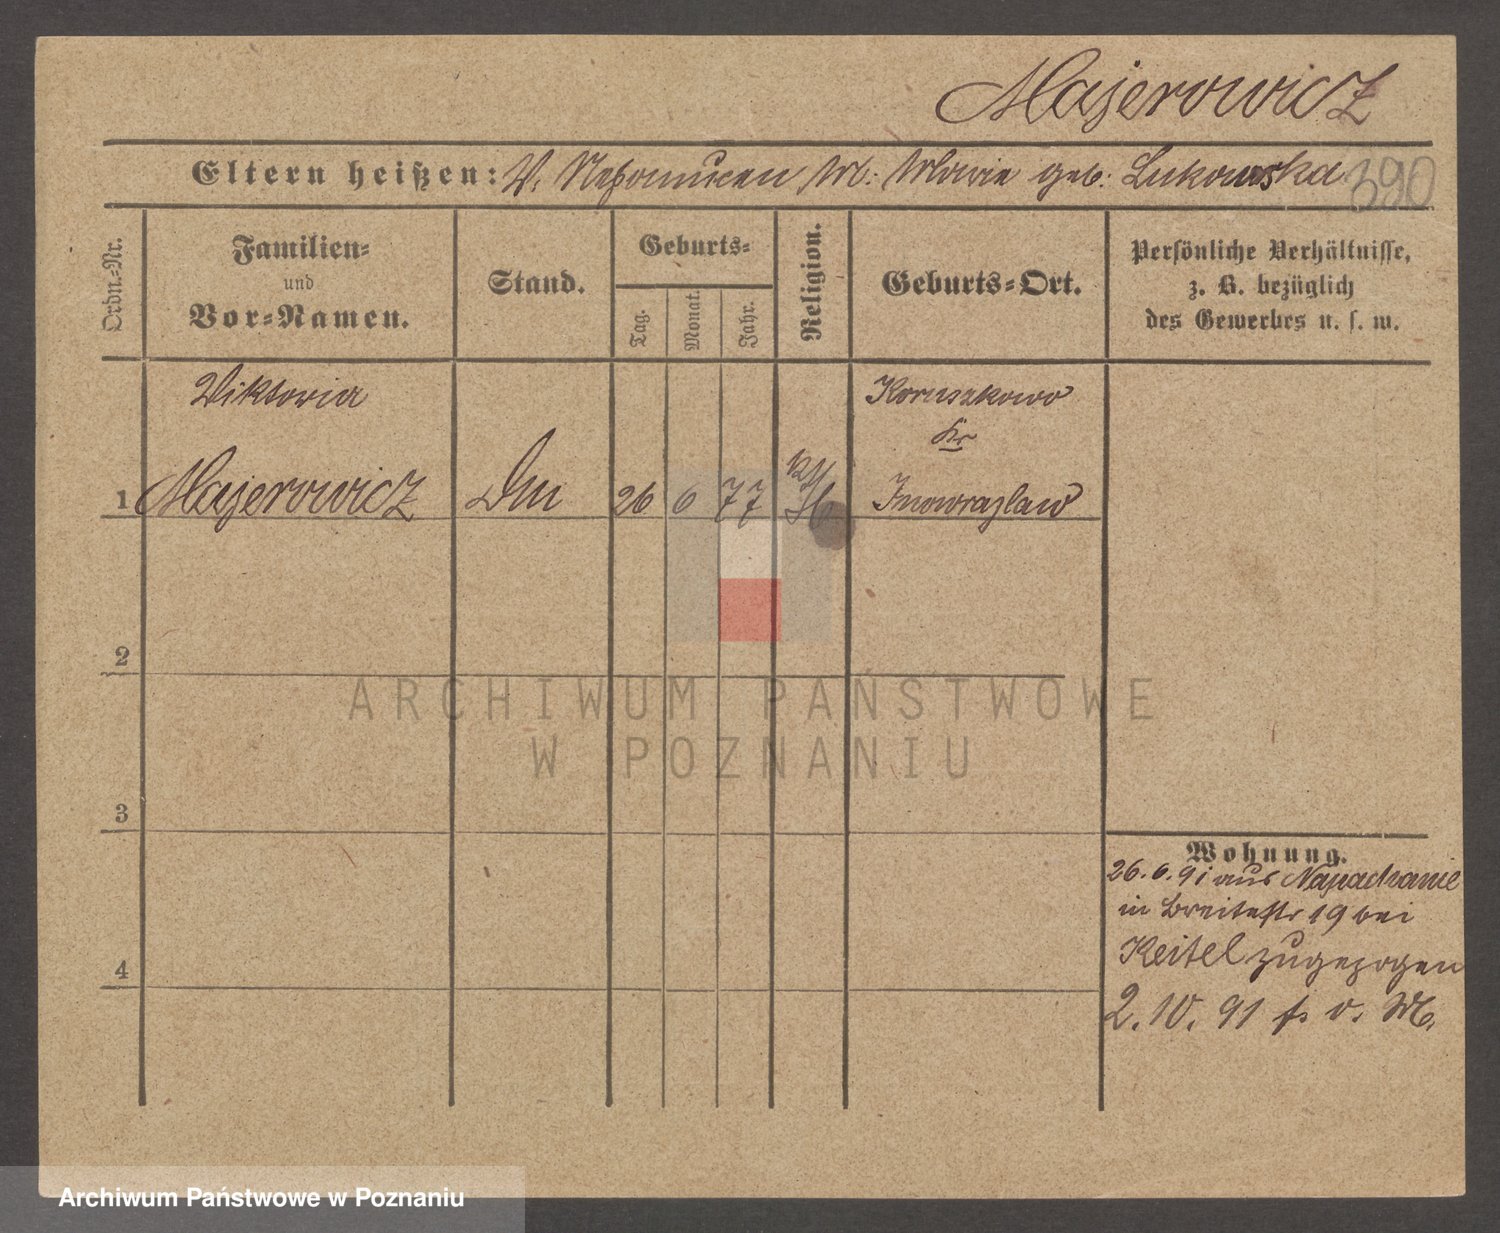 Majerowicz
Eltern heißen: V. Nepomucen M. Marie geb. Lukowska 390
Ordn.-Nr.
Familien-
und
Vor-Namen.
Stand.
Geburts-
Tag.
Monat.
Jahr.
Religion.
Geburts-Ort.
Persönliche Verhältnisse,
z. B. bezüglich
des Gewerbes u. s. w.
Viktoria
Koruszkowo
Kr
1 Majerowicz 26 6 77 Inowrazlaw
2
ARCHIWUM PAŃSTWOWE
W POZNANIU
3
Wohnung.
26.6.91 aus Napachanie
in Breitestr 19 bei
Keitel zugezogen
4
2.10.91 v. M.
Archiwum Państwowe w Poznaniu